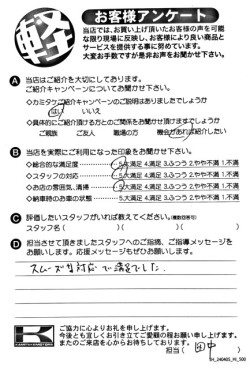 軽
お客様アンケート
当店では、お買い上げ頂いたお客様の声を可能
な限り現場に反映し、お客様により良い商品と
サービスを提供する事に努めています。
大変お手数ですが是非お声をお聞かせ下さい。
A 当店はご紹介を大切にしております。
ご紹介キャンペーンについてお聞かせ下さい。
◇カミタケご紹介キャンペーンのご説明はありましたでしょうか
はい いいえ
◇具体的にご紹介頂ける方とのご関係をお聞かせ頂けますでしょうか
ご親族 ご友人 職場の方 機会があれば紹介したい
B 当店を実際にご利用になった印象をお聞かせ下さい。
◇総合的な満足度 5.大満足 4.満足 3.ふつう 2.やや不満 1.不満
◇スタッフの対応 5.大満足 4.満足 3.ふつう 2.やや不満 1.不満
◇お店の雰囲気、清掃 5.大満足 4.満足 3.ふつう 2.やや不満 1.不満
◇納車時のお車の状態 5.大満足 4.満足 3.ふつう 2.やや不満 1.不満
C 評価したいスタッフがいれば教えてください。(複数回答可)
スタッフ名( )( )( )
D 担当させて頂きましたスタッフへのご指摘、ご指導メッセージを
お願いします。応援メッセージもぜひお願いします。
スムーズな対応で満足でした。
ご協力に心よりお礼を申し上げます。
今後とも宜しくお引き立てご愛顧の程お願い申し上げます。
またのご来店を心からお待ちしております。
担当( 田中 )